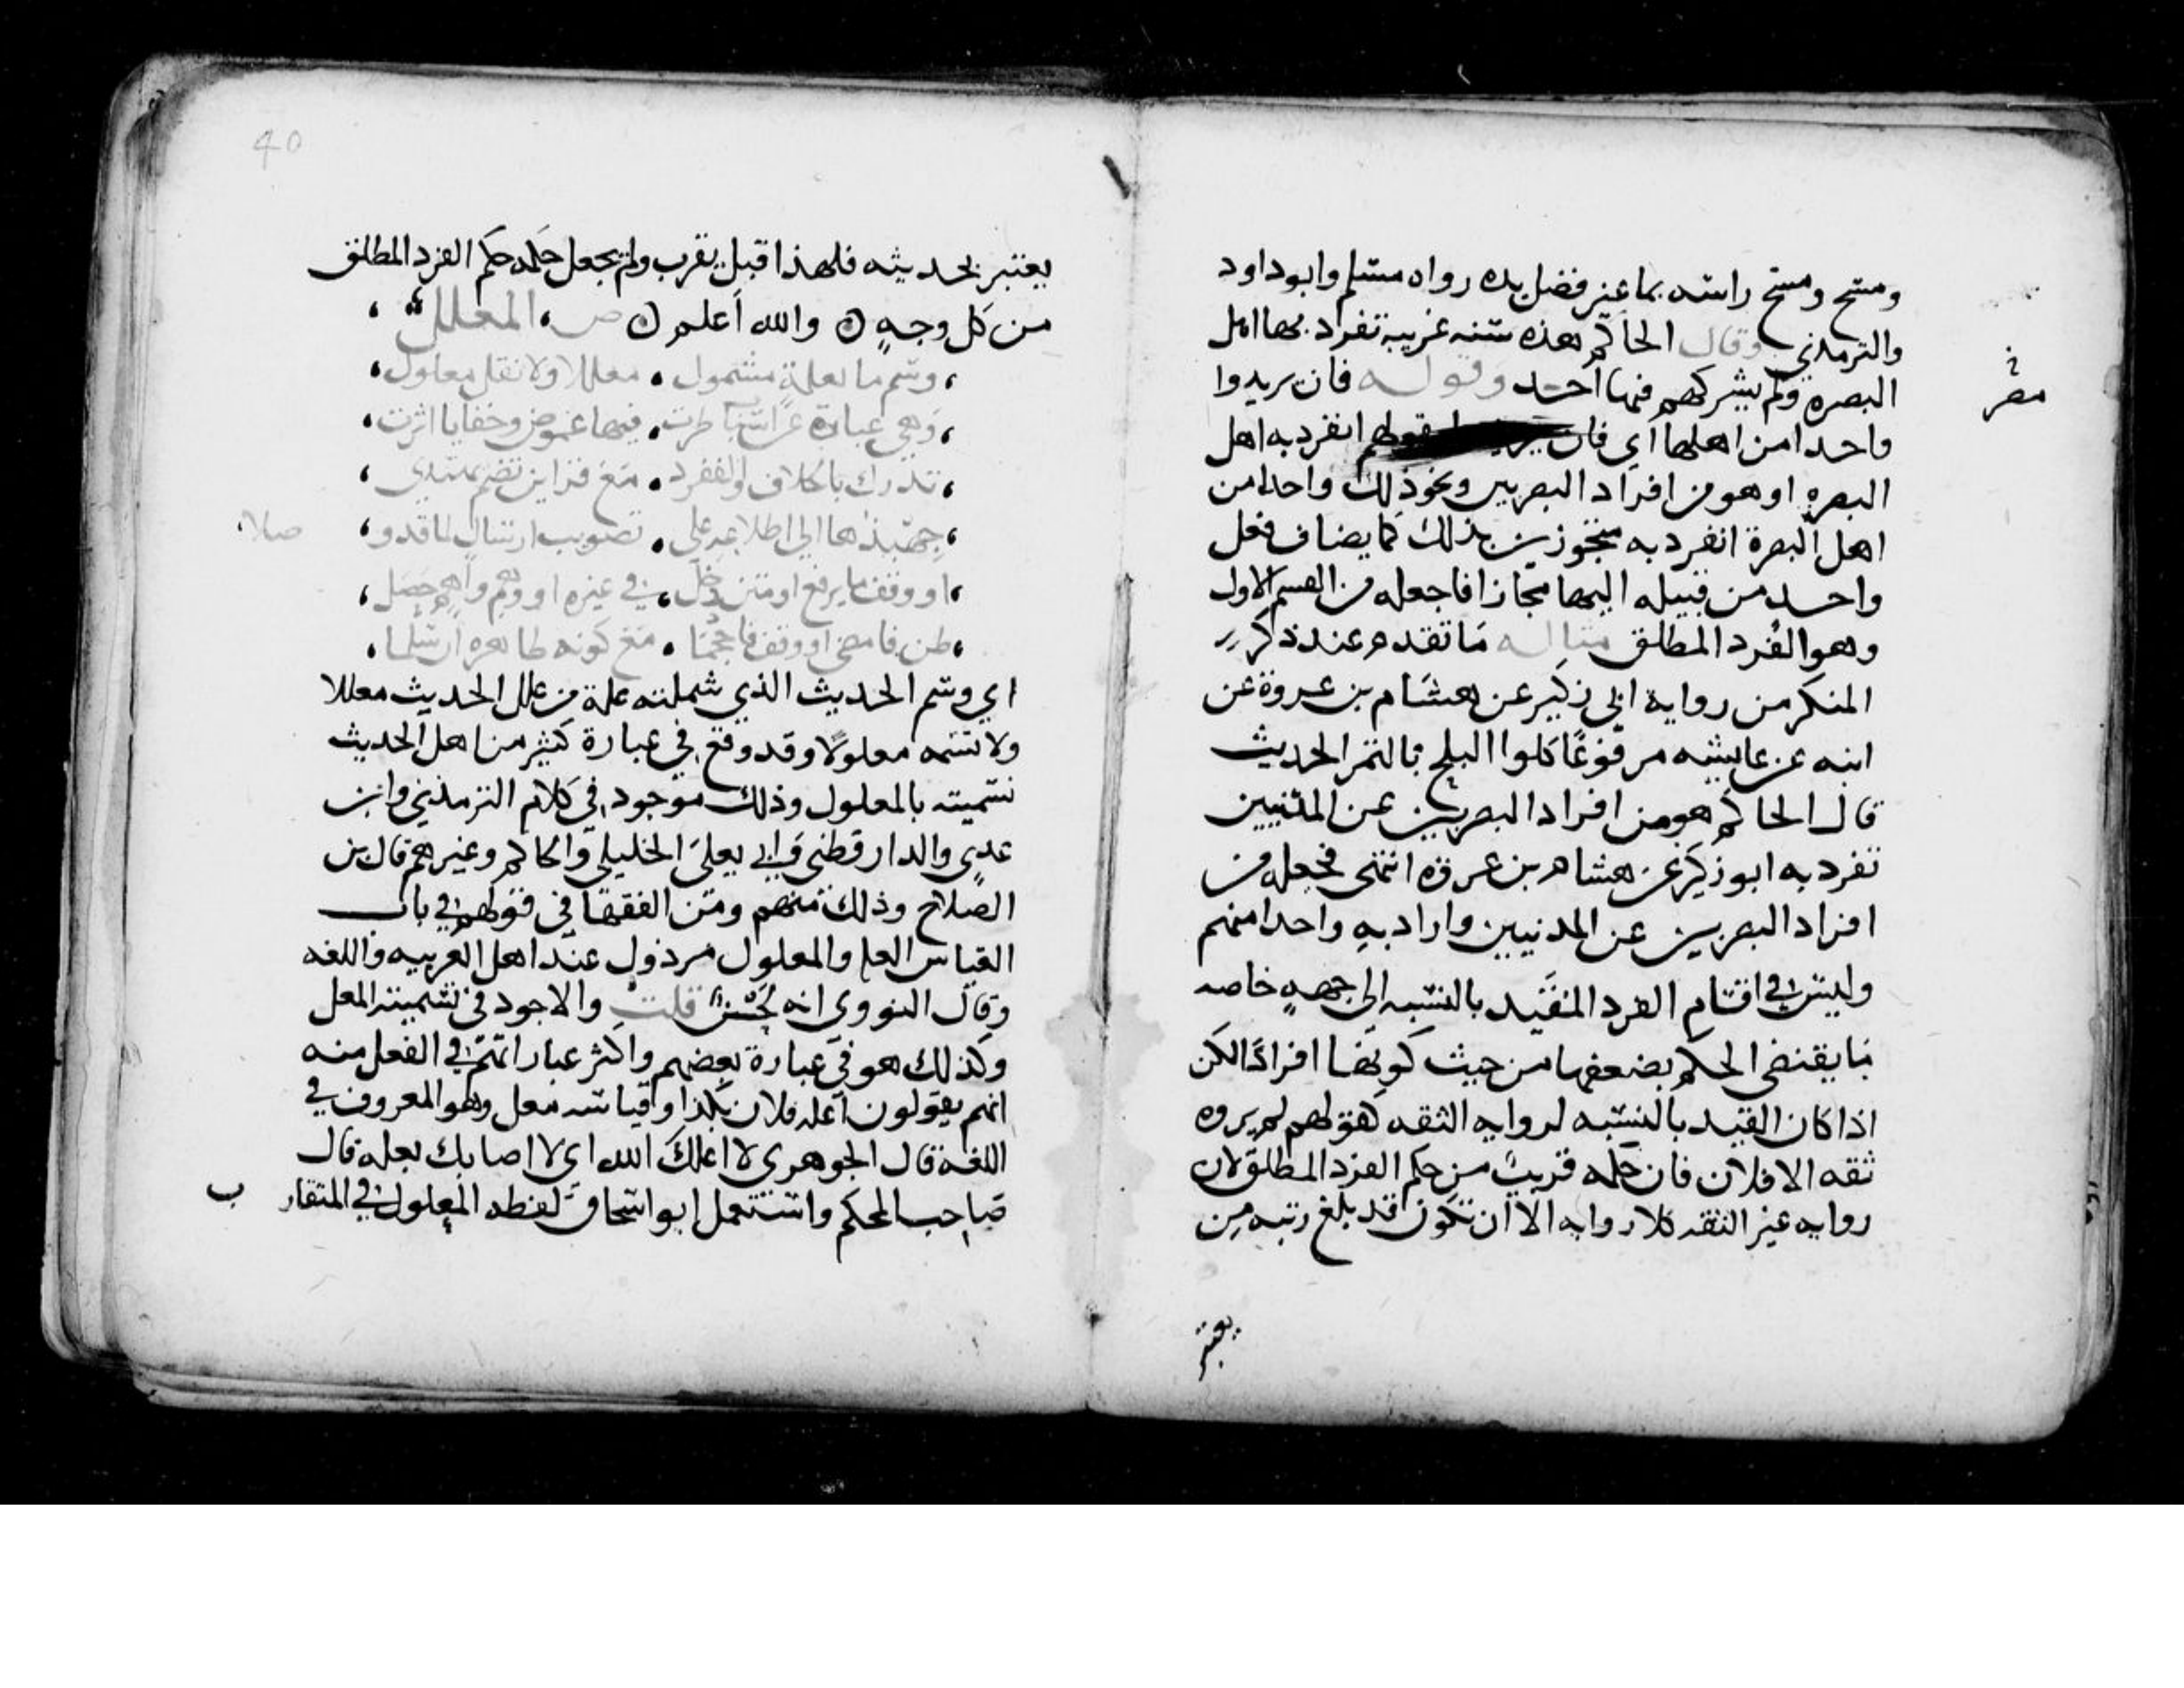 ومسح ومسح راسه بما غير فضل يده رواه مسلم وابوداود
والترمذي وقال الحاكم هذه سنه غريبه تفرد بها اهل
مصر
البصره ولم يشركهم فيها احد وقوله فان يريدوا
واحدا من اهلها اي فان بقولهم انفرد به اهل
البصره او هو من افراد البصريين ونحو ذلك واحدا من
اهل البصرة انفرد به متجوزين بذلك كما يضاف فعل
واحد من قبيله اليها مجازا فاجعله من القسم الاول
وهو الفرد المطلق مثاله ما تقدم عند ذكر
المنكر من رواية ابي زكير عن هشام بن عروة عن
ابيه عن عايشه مرفوعا كلوا البلح بالتمر الحديث
قال الحاكم هو من افراد البصريين عن المدنيين
تفرد به ابو زكير عن هشام بن عروة انتهى فجعله من
افراد البصريين عن المدنيين واراد به واحدا منهم
وليس في اقسام الفرد المقيد بالنسبه الى جهةٍ خاصه
ما يقتضي الحكم بضعفها من حيث كونها افرادًا لكن
اذا كان القيد بالنسبه لروايه الثقه كقولهم لم يروه
ثقه الا فلان فان حكمه قريب من حكم الفرد المطلق لان
روايه غير الثقه كلا روايه الا ان تكون قد بلغ رتبه من
يعتبر
40
يعتبر بحديثه فلهذا قيل يقرب ولم يجعل حكمه حكم الفرد المطلق
من كل وجهٍ ن والله اعلم ن ص المعلل
وسم ما بعلةٍ مشمول معللا ولا تقل معلول
وهي عبارة عن اسباب طرت فيها غموض وخفايا اثرت
تدرك بالخلاف والتفرد مع قراين تضم يهتدي
جهبذها الى اطلاعه على تصويب ارسالٍ لما قد و صلا
او وقف ما يرفع او متن دخل في غيره او وهم واهم حصل
ظن فامضى او وقف فاحجما مع كونه ظاهره ان سلما
اي وسم الحديث الذي شملته علة من علل الحديث معللا
ولا تسمه معلولًا وقد وقع في عبارة كثير من اهل الحديث
تسميته بالمعلول وذلك موجود في كلام الترمذي وابن
عدي والدارقطني وابي يعلى الخليلي والحاكم وغيرهم قال بن
الصلاح وذلك منهم ومن الفقها في قولهم في باب
القياس العله والمعلول مرذول عند اهل العربيه واللغه
وقال النووي انه لحن قلت والاجود في تسميته المعل
وكذلك هو في عبارة بعضهم واكثر عباراتهم في الفعل منه
انهم يقولون اعله فلان بكذا وقياسه معل وهو المعروف في
اللغة قال الجوهري لا اعلك الله اي لا اصابك بعله قال
صاحب المحكم واستعمل ابو اسحاق لفظه المعلول في المتقار ب